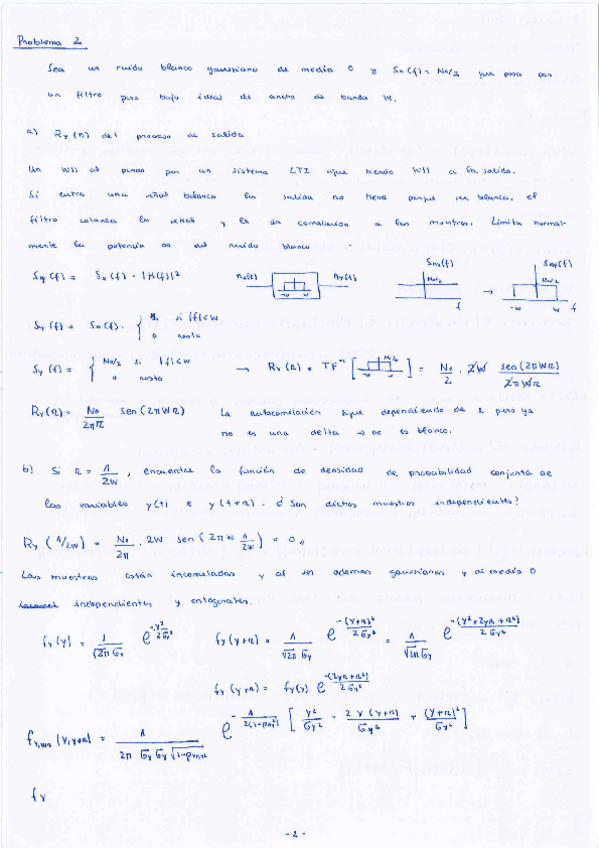 Problema 2
Sea un ruido blanco gaussiano de media 0 y Sn(f) = No/2 que pasa por
un filtro paso bajo ideal de ancho de banda W.
a) Ry(τ) del proceso de salida
Un WSS al pasar por un sistema LTI sigue siendo WSS a la salida.
Si entra una señal blanca la salida no tiene porque ser blanca, el
filtro colorea la señal y le da correlación a las muestras. Limita normal-
mente la potencia del ruido blanco
Sy(f) = Sx(f) · |H(f)|² nx(t) -w w ny(t) Snx(f) No/2 f → Sny(f) No/2 -w w f
Sy(f) = Sx(f) · { si |f|<W 0 resto
Sy(f) = { No/2 si |f|<W 0 resto → Ry(τ) = TF⁻¹ [ No/2 -w w ] = No/2 · 2W sen(2πWτ)/2πWτ
Ry(τ) = No/2πτ sen(2πWτ) La autocorrelación sigue dependiendo de τ pero ya
no es una delta → no es blanco.
b) Si τ = 1/2W, encuentre la función de densidad de probabilidad conjunta de
las variables y(t) e y(t+τ). ¿Son dichas muestras independientes?
Ry(1/2W) = No/2π · 2W sen(2πW 1/2W) = 0 //
Las muestras están incorreladas y al ser ademas gaussianas y de media 0
independientes y ortogonales.
fy(y) = 1/√2π σy e^(-y²/2σy²) fy(y+τ) = 1/√2π σy e^(-(y+τ)²/2σy²) = 1/√2π σy e^(-(y²+2yτ+τ²)/2σy²)
fy(y+τ) = fy(y) e^(-(2yτ+τ²)/2σy²)
(y,y+τ) = 1/2π σy σy √1-ρ e^(-1/2(1-ρ²) [ y²/σy² - 2y(y+τ)/σy² + (y+τ)²/σy² ])
fy
-2-